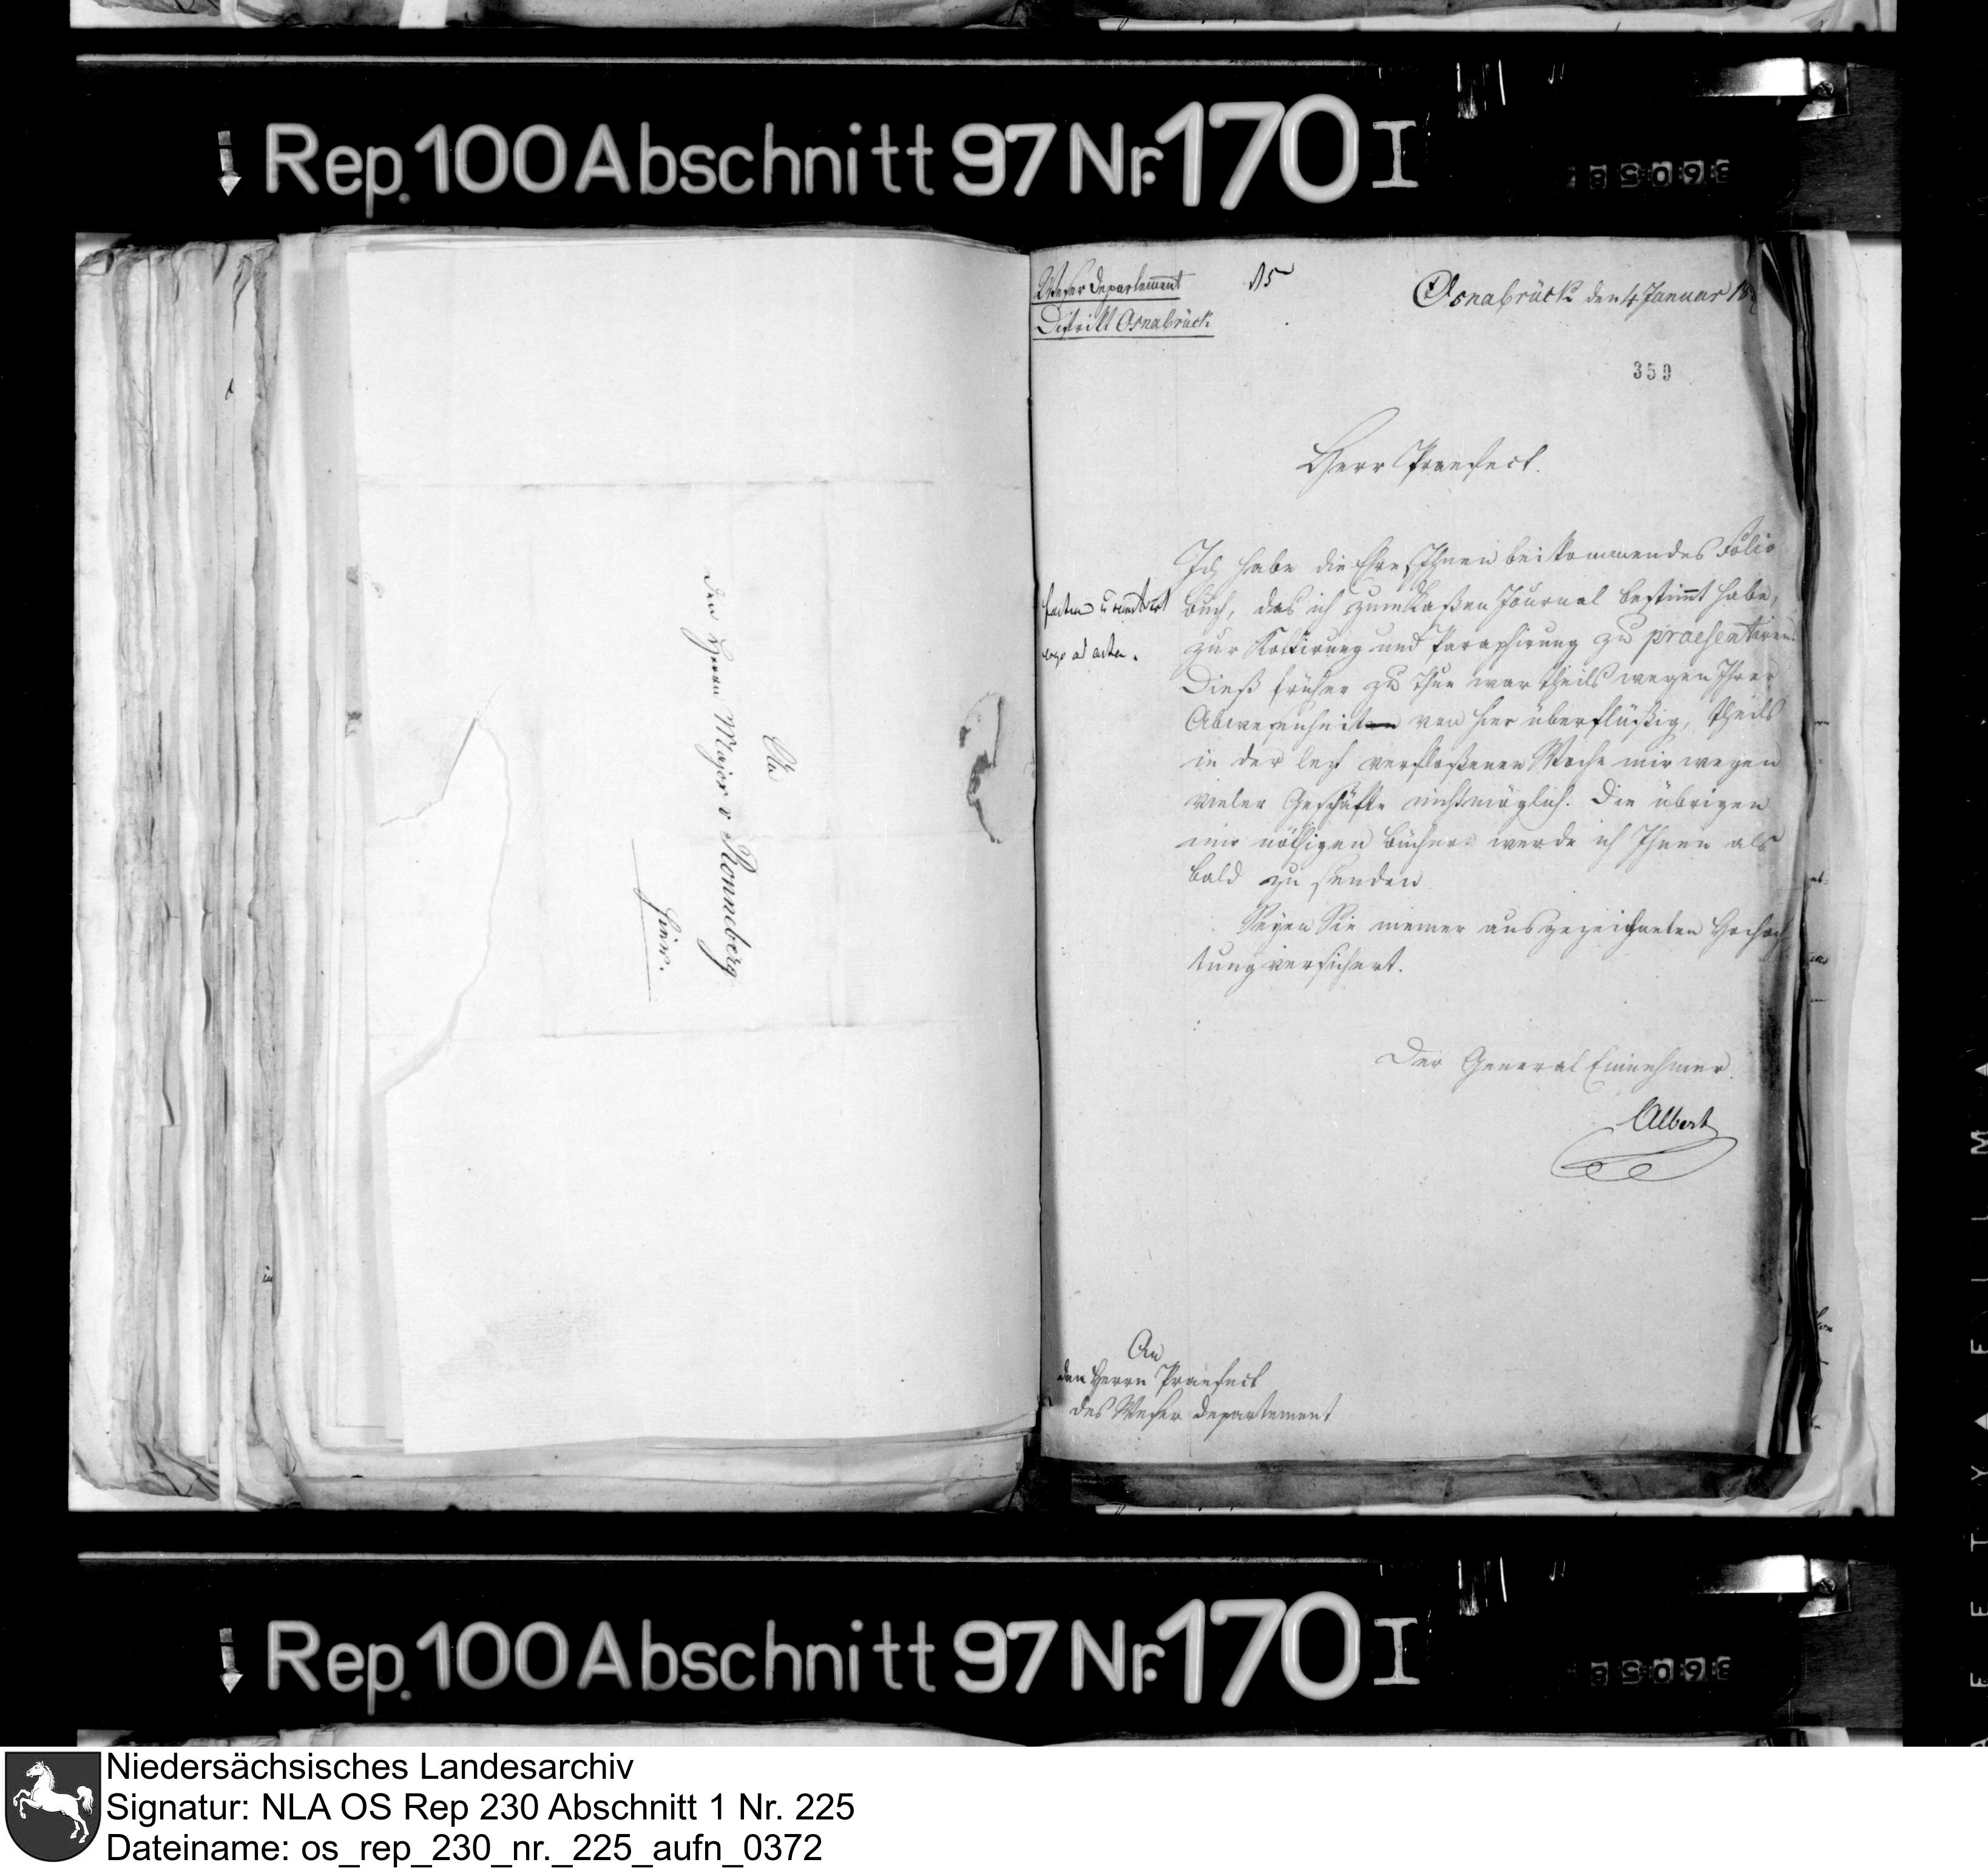 Rep. 100 Abschnitt 97 Nr. 170 I
An
den Herrn Major v Ronneberg
hier.
Weser Departement
Distrikt Osnabrück
15
Osnabrück den 4 Januar 18
359
Herr Praefect.
Ich habe die Ehre Ihnen beikommendes Folio
buch, das ich zum Kaßen Journal bestimt habe,
zur Kottirung und Paraphirung zu praesentiren.
Dieß früher zu thun war theils wegen Ihrer
Abwesenheit von hier überflüßig, theils
in der lezt verfloßenen Woche mir wegen
vieler Geschäfte nicht möglich. Die übrigen
mir nöthigen Bücher werde ich Ihnen als
bald zu senden
Seyen Sie meiner ausgezeichneten Hochach
tung versichert.
ad acta.
Der General Einnehmer
Albert
An
den Herrn Praefect
des Weser Departement
Rep. 100 Abschnitt 97 Nr. 170 I
Niedersächsisches Landesarchiv
Signatur: NLA OS Rep 230 Abschnitt 1 Nr. 225
Dateiname: os_rep_230_nr._225_aufn_0372